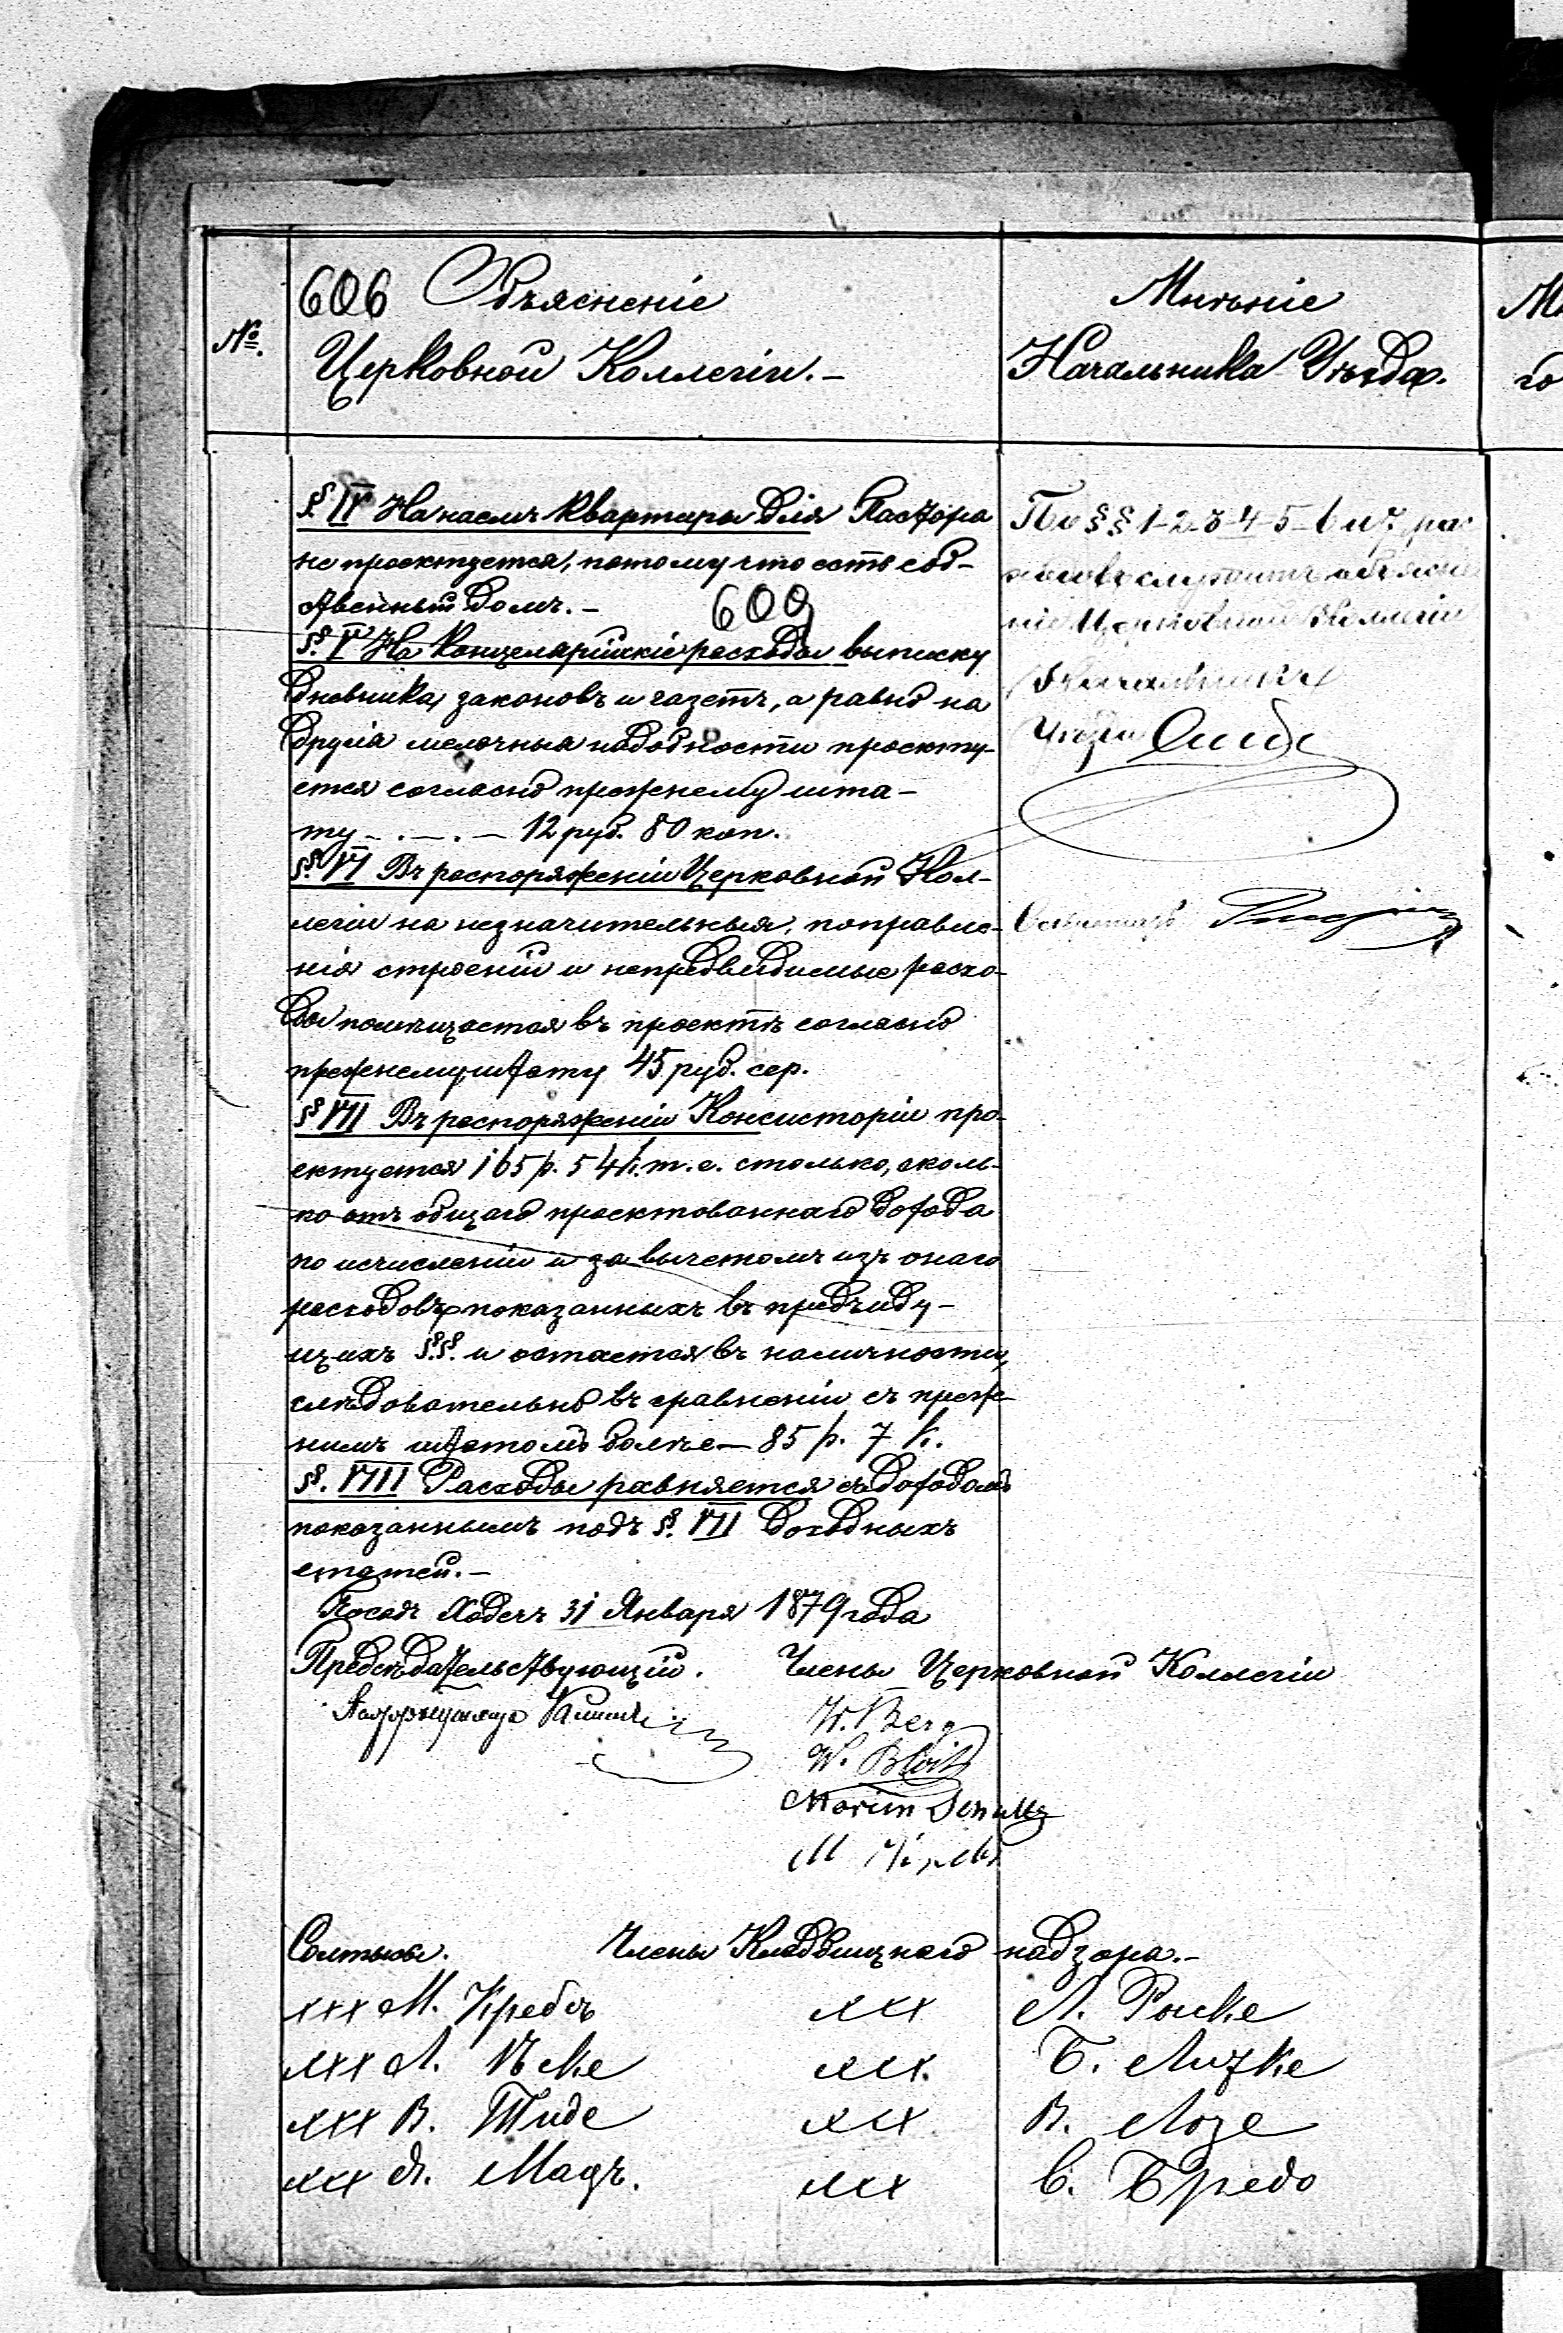 606 Объясненіе
№ Церковной Коллегіи.-
Мнѣніе
Начальника Уѣзда.
§. IV На наемъ квартиры для Пастора
не проектуется, потому что есть соб-
ственный домъ.-
609
§. V На канцелярійскіе расходы выписку
дневника законовъ и газетъ, а равно на
другія мелочныя надобности проекту-
ется согласно прежнему шта-
ту - . - . - 12 руб. 80 коп.
§. VI Въ распоряженіи Церковной Кол-
легіи на незначительныя, поправле-
нія строеній и непредвидимые расхо-
ды помѣщается въ проектѣ согласно
прежнему штату 45 руб. сер.
§ VII Въ распоряженіи Консисторіи про-
ектуется 165 р. 54 к. т. е. столько, сколь-
ко отъ общаго проектованнаго дохода
по исчисленіи и за вычетомъ изъ онаго
расходовъ показанныхъ въ предъиду-
щихъ §.§. и остается въ наличности,
слѣдовательно въ сравненіи съ преж-
нимъ штатомъ болѣе - 85 р. 7 к.
§. VIII Расходы равняется съ доходомъ
показаннымъ подъ §. VII доходныхъ
статей.-
Посадъ Ходечъ 31 Января 1879 года
По §§ 1-2-3-4-5-6 и 7 рас
служитъ объясне
ніе Церковной Коллегіи
Начальникъ
Уѣзда
Предсѣдательствующій.
Члены Церковной Коллегіи
W. Berg
W.
Martin Schultz
M
Солтысы.
Члены Кладбищнаго надзора.-
xxx М. Кребсъ
xxx Л. Рыске
xxx Л.
xxx. Б. Лиzке
xxx В. Тиде
xxx В. Лозе
xxx Я. Маqъ.
xxx С. Бредо